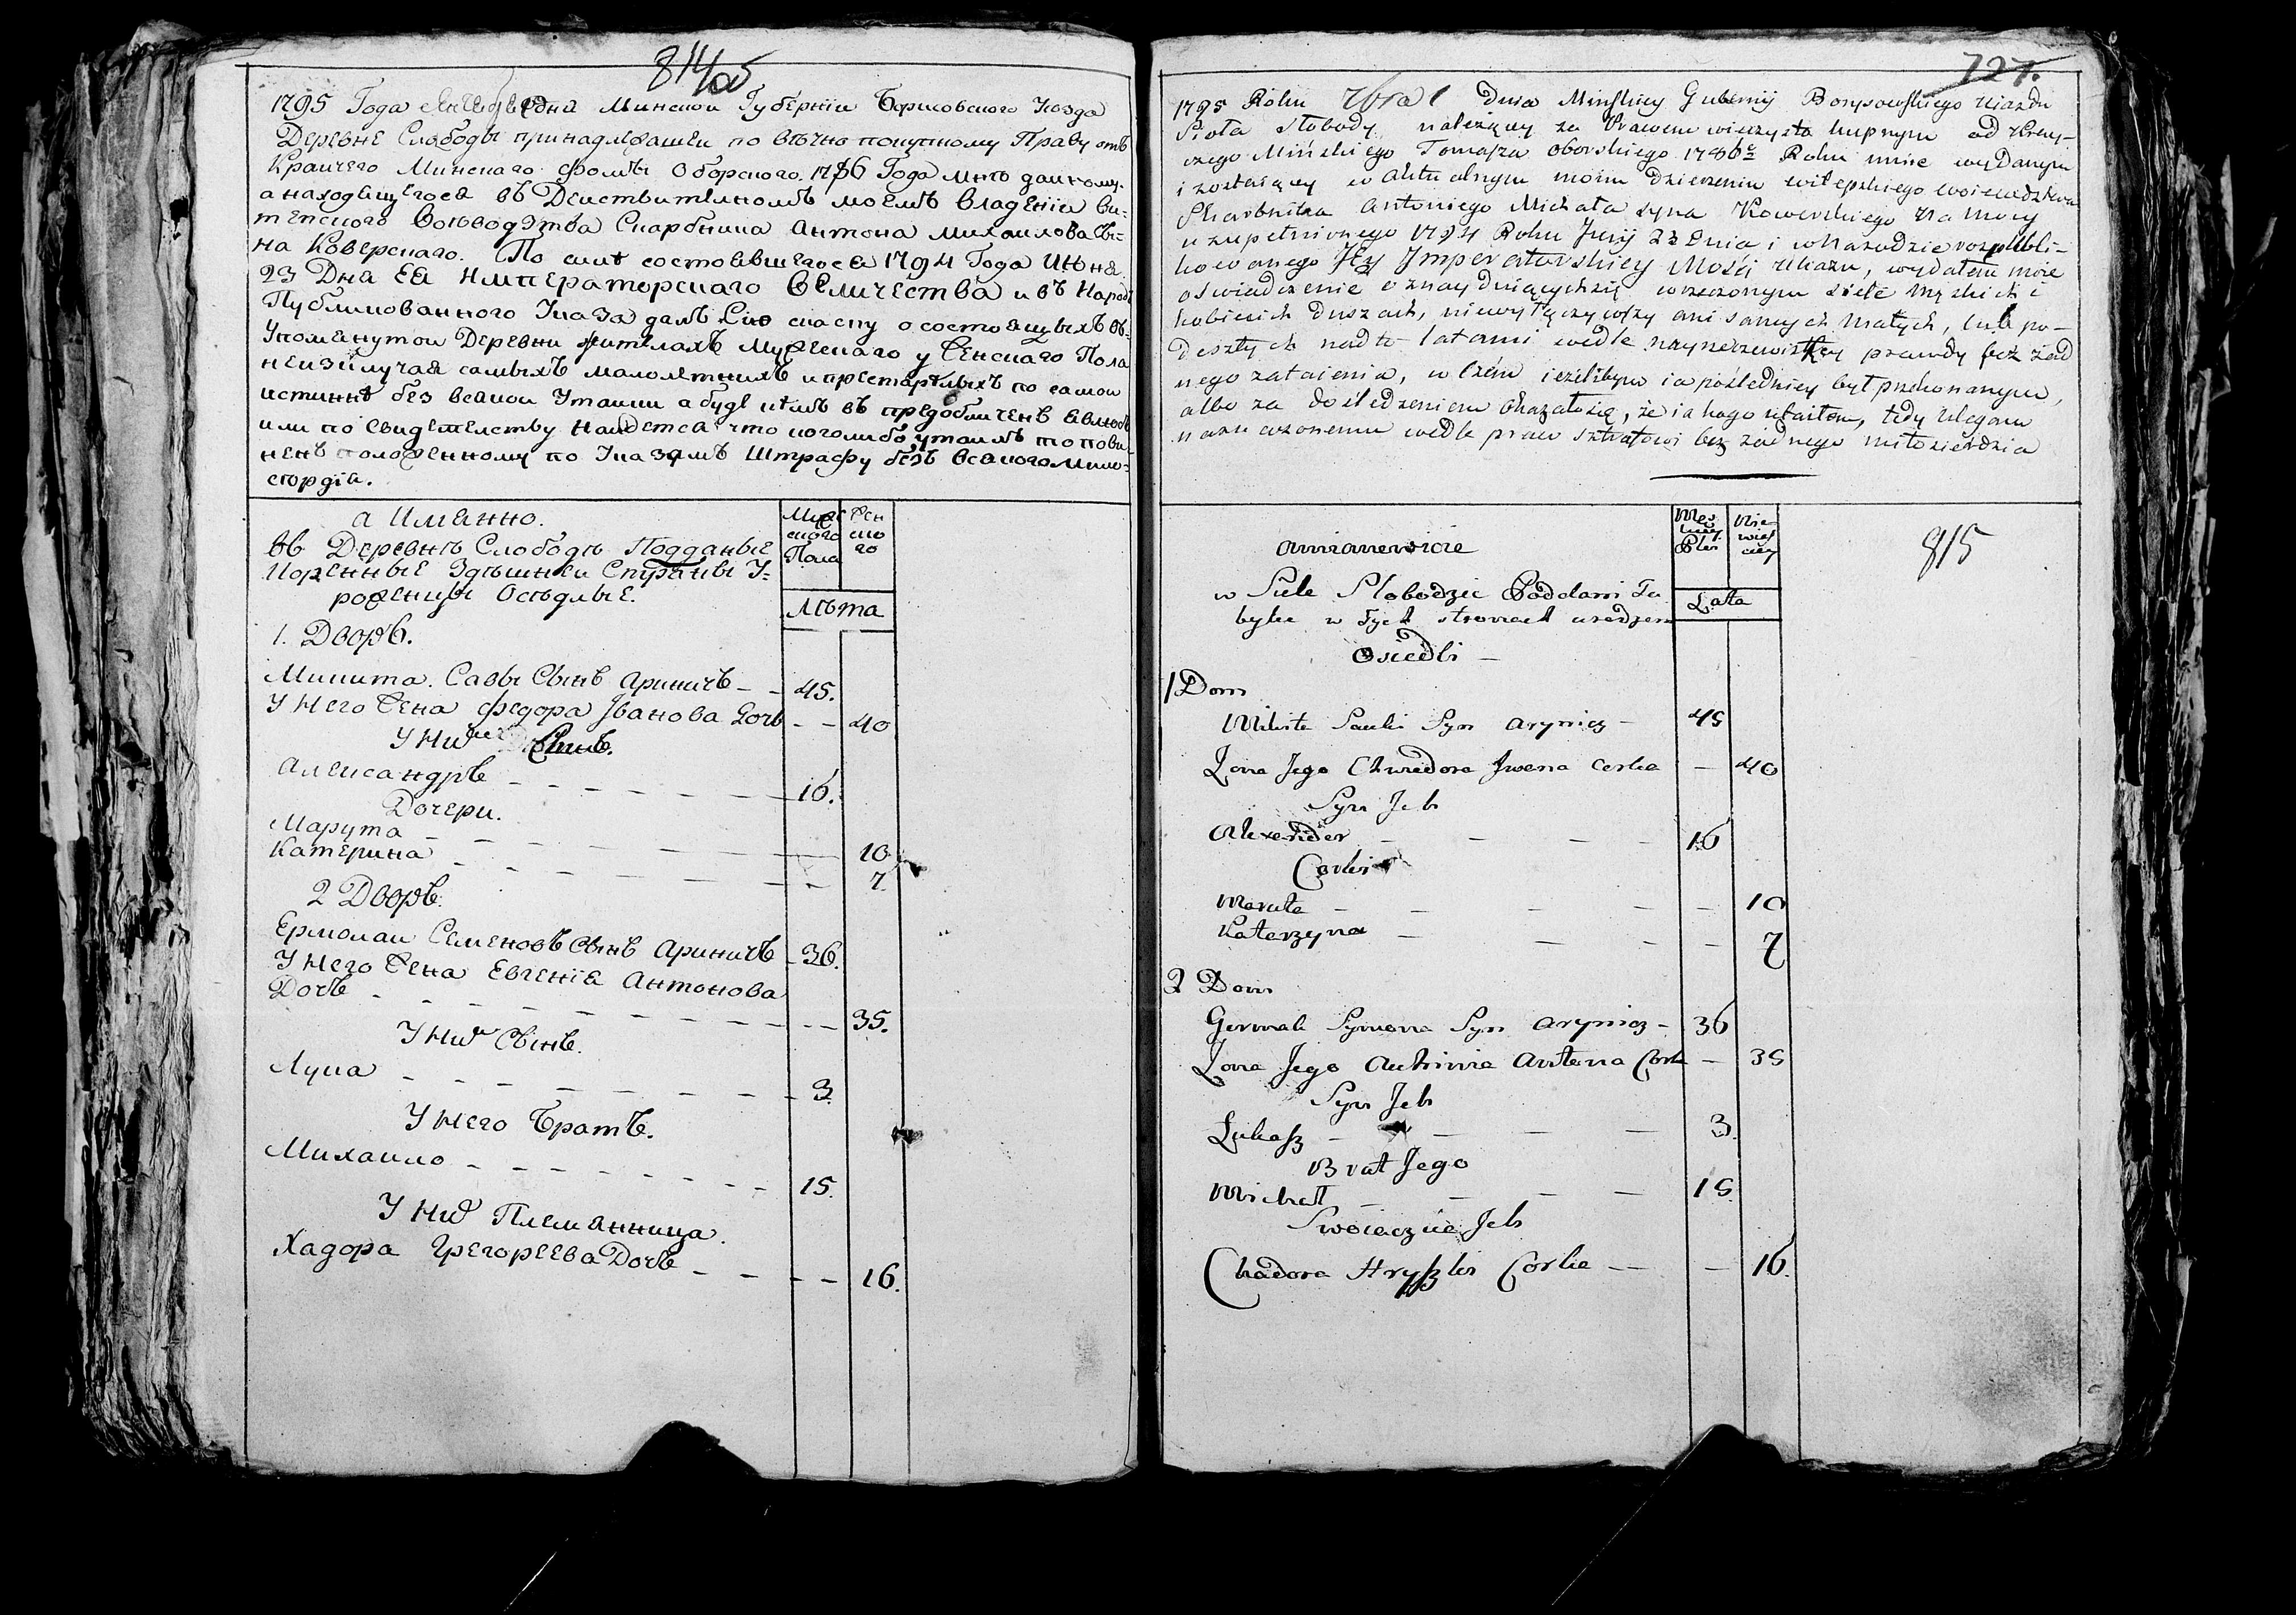 814/об
1795 Года Дня Минской Губерніи Борисовского Уезда
Деревне Слободы принадлежащей по вѣчно покупному Праву отъ
Крайчего Минскаго Фомы Оборского 1786 Года мнѣ данному.
а находящуегося въ Действителномъ моемъ владеніи Ви-
тепского Воеводзтва Скарбника Антона Михайлова Сы-
на Коверскаго. По силѣ состоявшегося 1794 Года Июня
23 Дня ЕЯ Императорскаго Величества и въ Народъ
Публикованного Указа далъ Сию скаску о состоящыхъ въ
Упомянутой Деревни жителяхъ Мужескаго у Женскаго Пола
неизключая самыхъ малолѣтнихъ и престарѣлыхъ по самой
истиннѣ без всякой Утайки а буде кѣмъ въ предобличенъ явлюсь
или по Свидетелству найдется что коголибо утаилъ то пови-
ненъ положенному по Указамъ Штрафу безъ всякого мило-
сердія.
а Имянно.
Мужеского Пола
Женского
въ Деревнѣ Слободѣ Подданые
Корѣнные Здѣшней Стораны У-
роженцы Осѣдлые.
Лѣта
1. Дворъ.
Микита Савы Сынъ Ариничъ - - 45.
У Него Жена Федора Іванова Дочь - - 40
У Них Сынъ.
Александръ - - - - - - 16.
Дочери.
Марута - - - - - - 10
Катерина - - - - - - 7.
2 Дворъ.
Ермолай Семеновъ Сынъ Ариничъ - 36.
У Него Жена Евгенія Антонова
Дочь - - - - - - - - - 35.
У Них Сынъ.
Лука - - - - - - - 3.
У Него Братъ.
Михайло - - - - - - 15.
У Них Племянница.
Хадора Грегореева Дочь - - - - 16.
727.
1795 Roku Dnia Minskiey Gubernij Borysowskiego Uiazdu
Sioła Słobody należącey za Prawem wieczysto kupnym od Kray-
czego Mińskiego Tomasza Oborskiego 1786 Roku mnie wydanym
i zostaiącey w aktualnym moim dzierzeniu witepskiego woiewodztwa
Skarbnika Antoniego Michała syna Kowerskiego Na mocy
uzupełnionego 1794 Roku Junij 23 Dnia i w Narodzie rozpubli-
kowanego Jey Imperatorskiey Mości Ukazu, wydałem moie
oswiadczenie o znayduiących się w rzeczonym siele męskich i
kobiecich duszach, niewyłączywszy ani samych małych, lub po-
deszłych nad to latami wedle nayrzeczewistszey prawdy bez żad
nego zataienia, w czém ieżelibym ia poślednicy był przekonanym,
albo za dośledzeniem okazałosię, że ia kogo utaiłem, tedy ulegam
nakazanemu wedle praw sztrafowi bez żadnego miłosierdzia
815
amianowicie
Męs kiey Płci
Nie wies ciey
w Siele Słobodzie Poddani Tu
bylce w Tych stronach urodzeni
Osiedli -
Lata
1 Dom
Mikita Sawki Syn Arynicz - 45
Żona Jego Chwiedora Jwana Corka - 40
Syn Jch
Alexander - - - - 16
Corki
Maruta - - - - - 10
Katerzyna - - - - 7
2 Dom
Germak Symona Syn Arynicz - 36
Żona Jego Auhinia Antona Corka - 35
Syn Jch
Łukasz - - - - 3.
Brat Jego
Michał - - - - 15
Swoiaczna Jch
Chadora Hryszki Corka - - 16.